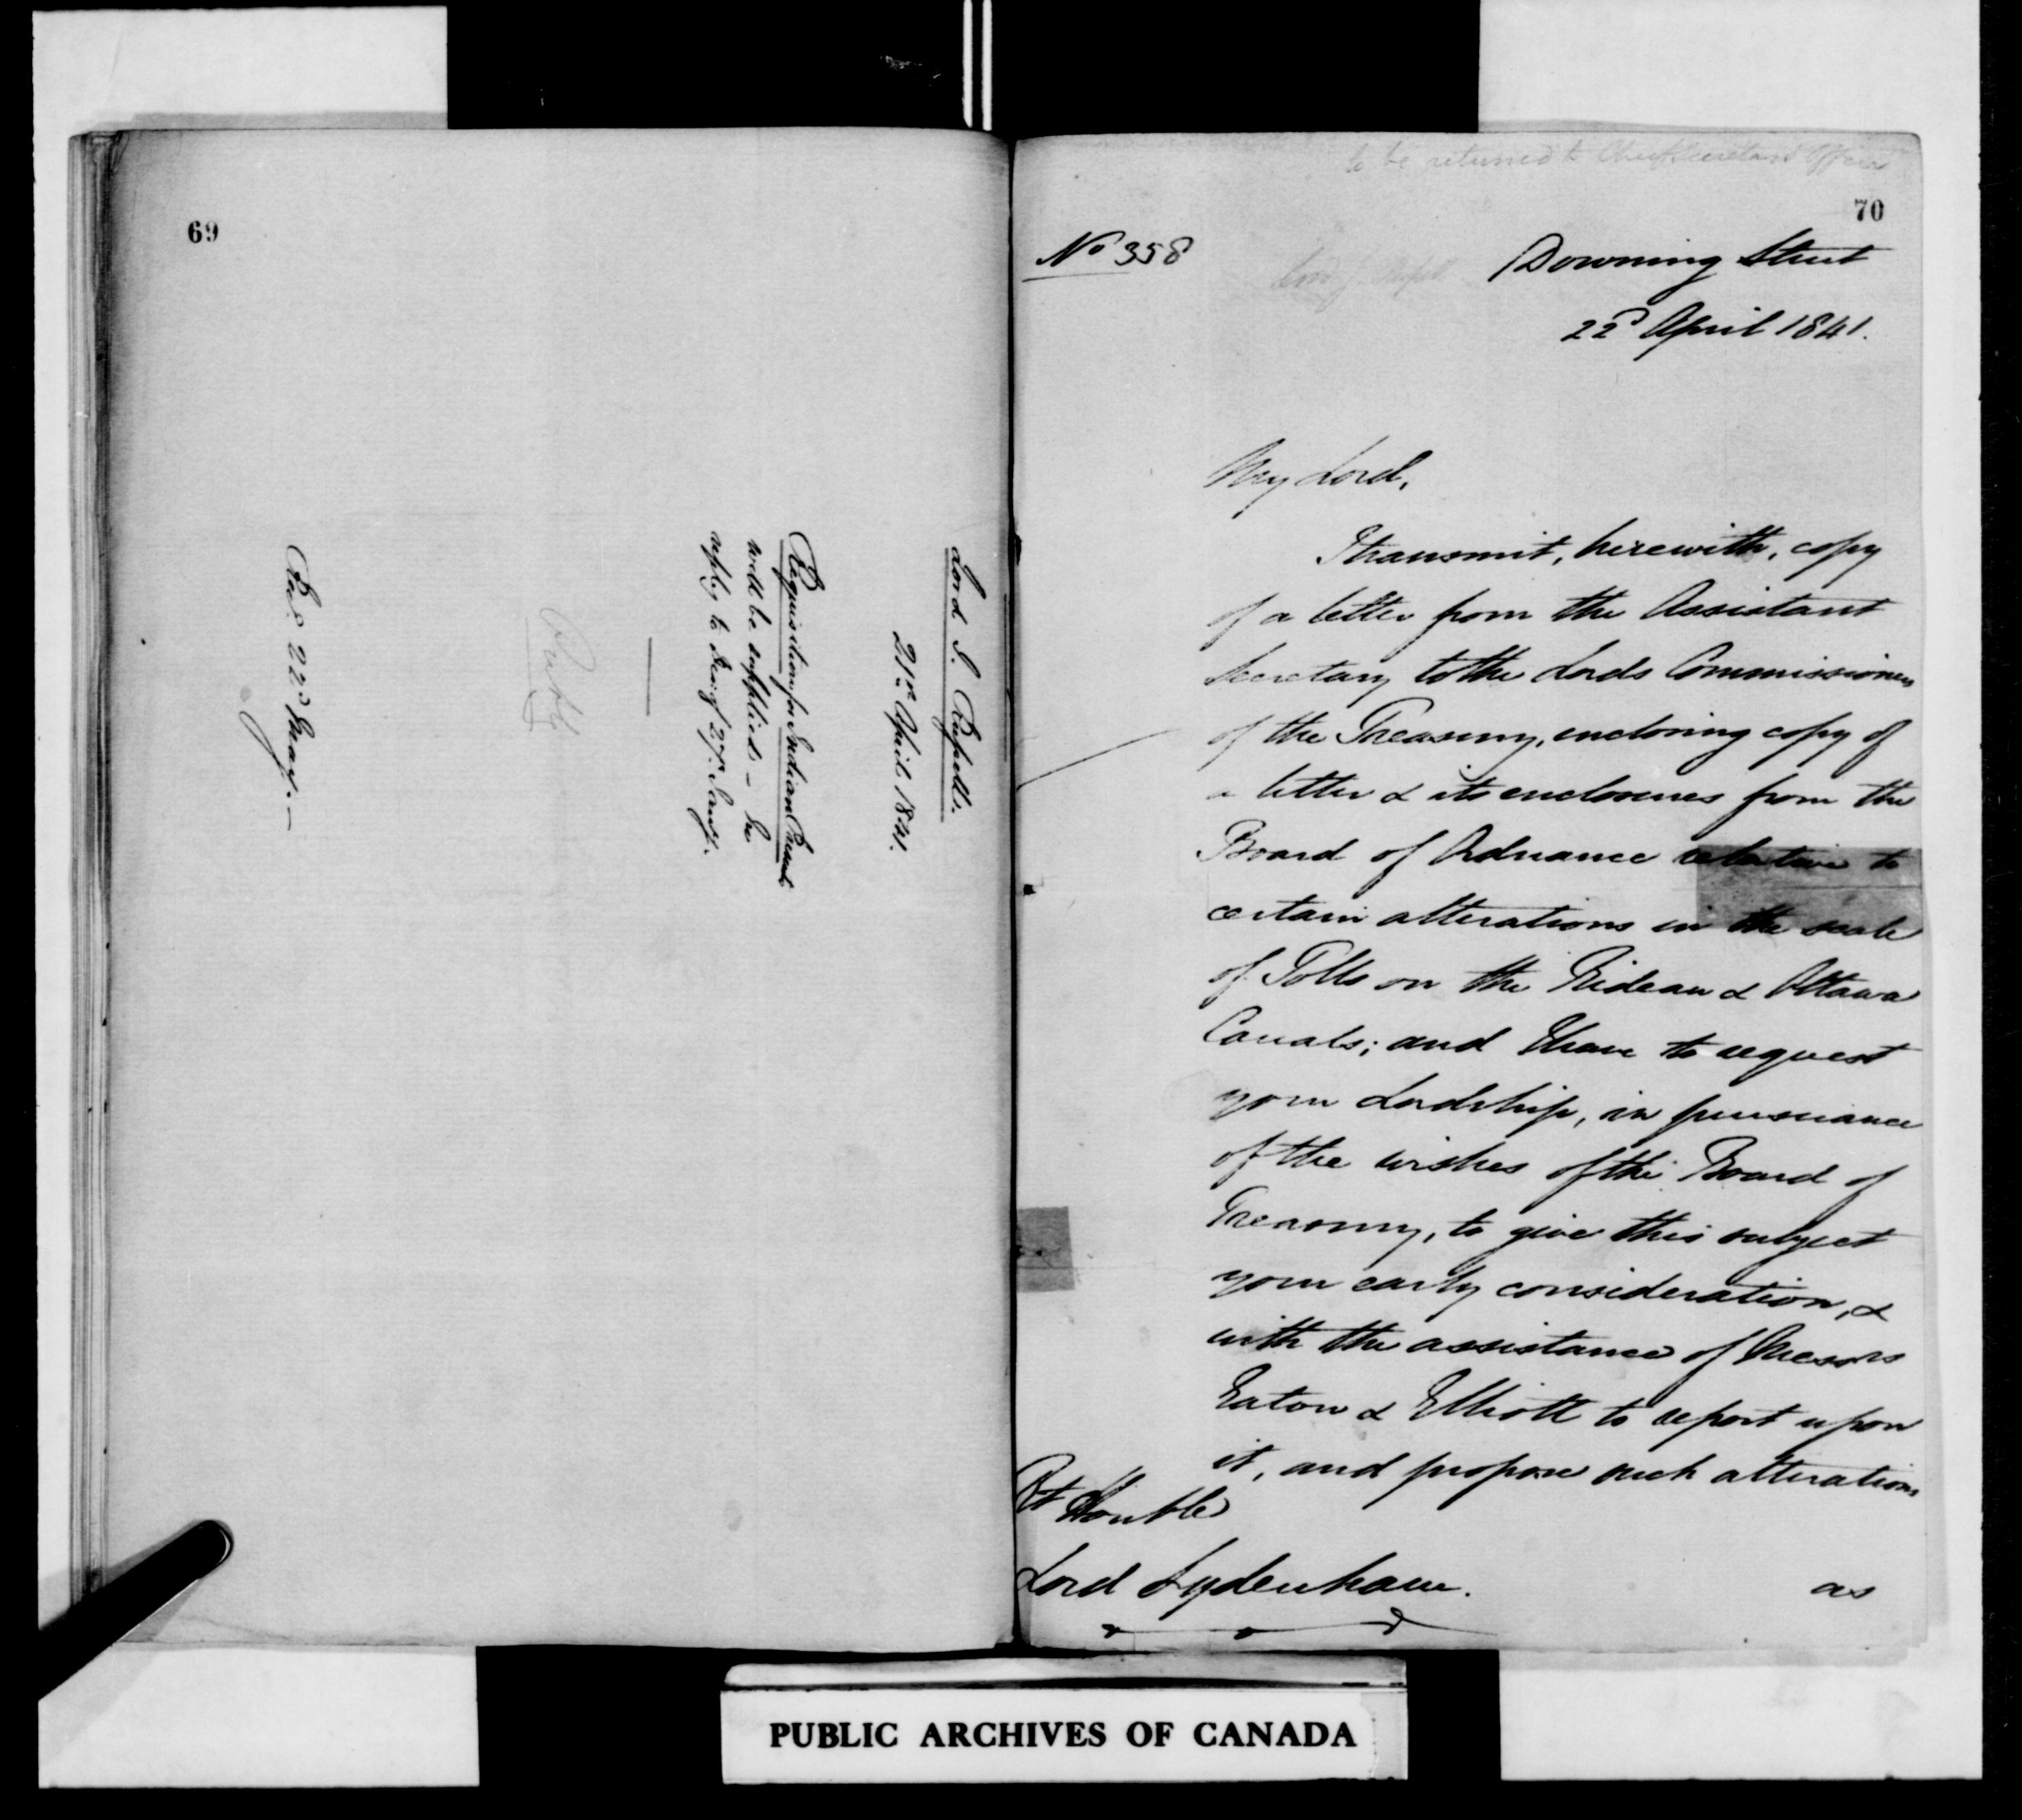 69
Lord J. Russell.
21st April 1841.
Requisition for Indian Presents
will be supplied – In
reply to Desp. of 27th Jany.
Recd 22d May. –
to be returned to Chief Secretary's Office
70
No 358
Downing Street
22d April 1841.
My Lord,
I transmit, herewith, copy
of a letter from the Assistant
Secretary to the Lords Commissioners
of the Treasury, enclosing copy of
a letter & its enclosures from the
Board of Ordnance relative to
certain alterations in the scale
of Tolls on the Rideau & Ottawa
Canals; and I have to request
your Lordship, in pursuance
of the wishes of the Board of
Treasury, to give this subject
your early consideration, &
with the assistance of Messrs
Eaton & Elliott to report upon
it, and propose such alterations
Rt Honble
Lord Sydenham.
as
PUBLIC ARCHIVES OF CANADA